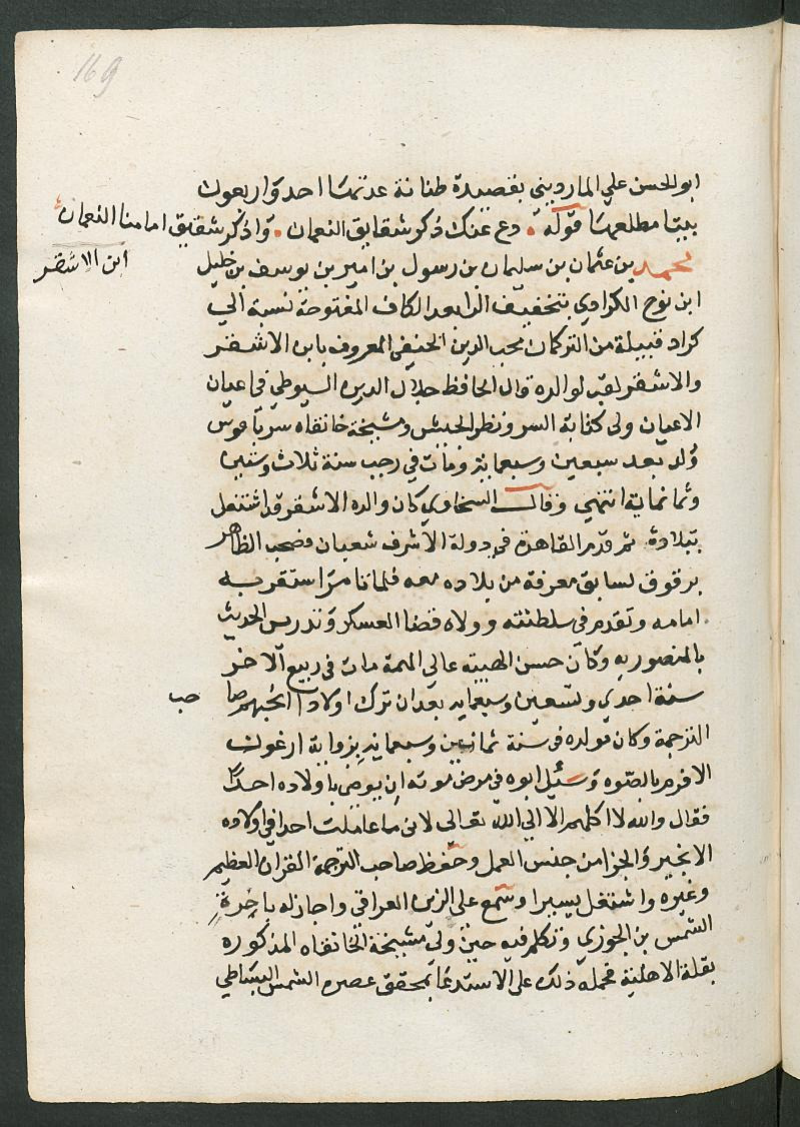 169
ابو الحسن علي المارديني بقصيدة طنانة عدتها احد واربعون
بيتا مطلعها قوله دع عنك ذكر شقايق النعمان واذكر شقيق امامنا النعمان
ابن الاشقر
محمد بن عثمان بن سليمان بن رسول بن امير بن يوسف بن خليل
ابن نوح الكرادي بتخفيف الرا بعد الكاف المفتوحة نسبة الي
كراد قبيلة من التركمان محب الدين الحنفي المعروف بابن الاشقر
والاشقر لقب لوالده قال الحافظ جلال الدين السيوطي في اعيان
الاعيان ولي كتابة السر ونظر الجيش ومشيخة خانقاه سرياقوس
ولد بعد سبعين وسبعماية ومات في رجب سنة ثلاث وستين
وثمانماية انتهي وقال السخاوي كان والده الاشقر قد اشتغل
ببلاده ثم قدم القاهرة في دولة الاشرف شعبان فصحب الظاهر
برقوق لسابق معرفة من بلاده معه فلما تامر استقر به
امامه وتقدم في سلطنته وولاه قضا العسكر وتدريس الحديث
بالمنصوريه وكان حسن الهيبة عالي الهمة مات في ربيع الاخر
سنة احدي وتسعين وسبعمايه بعد ان ترك اولادا انجبهم صا
حب
الترجمة وكان مولده في سنة وسبعمايه بزواية ارغون
الافرم بالصوه وسئل ابوه في مرض موته ان يوصي باولاده احدا
فقال والله لا اكلهم الا الي الله تعالى لاني ما عاملت احدا في اولاده
الا بخير والجزا من جنس العمل وحفظ صاحب الترجمة القران العظيم
وغيره واشتغل يسيرا وسمع علي الزين العراقي واجاز له باخرة
الشمس بن الجوزي وتكلم فيه حين ولي مشيخة الخانقاه المذكوره
بقلة الاهلية فحمله ذلك علي الاستدعا بمحقق عصره الشمس البساطي